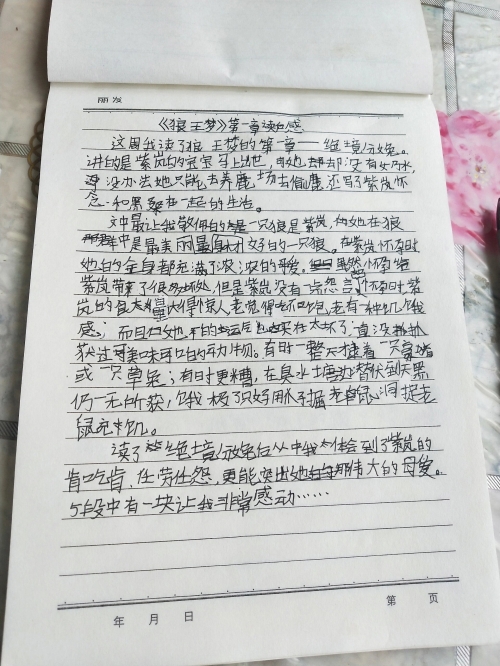 丽发
《狼王梦》第一章读后感
这周我读了狼王梦的第一章——绝境分娩。
讲的是紫岚的宝宝马上出世,可她却却没有奶水,
没办法她只能去养鹿场去偷鹿还写了紫岚怀
念和黑桑在一起的生活。
文中最让我敬佩的是一只狼是紫岚,她在狼
群中是最美丽身材好的一只狼。在紫岚怀孕时
她的全身都充满了浓浓的母爱。虽然怀孕给
紫岚带来了很多坏处,但是紫岚没有一点怨言,怀孕时紫
岚的食量大得惊人老觉得吃不饱,老有一种饥饿
感;而且她的运气也实在太坏了,一直没
获过美味可口的动物。有时一整天逮着一只
或一只草兔;有时更糟,在臭水塘边潜伏到天黑
仍一无所获,饿极了只好用爪子掘老鼠洞捉老
鼠充饥。
读了绝境分娩后从中我体会到了紫岚的
肯吃苦,任劳任怨,更能突出她那伟大的母爱。
片段中有一块让我非常感动……
年 月 日
第 页